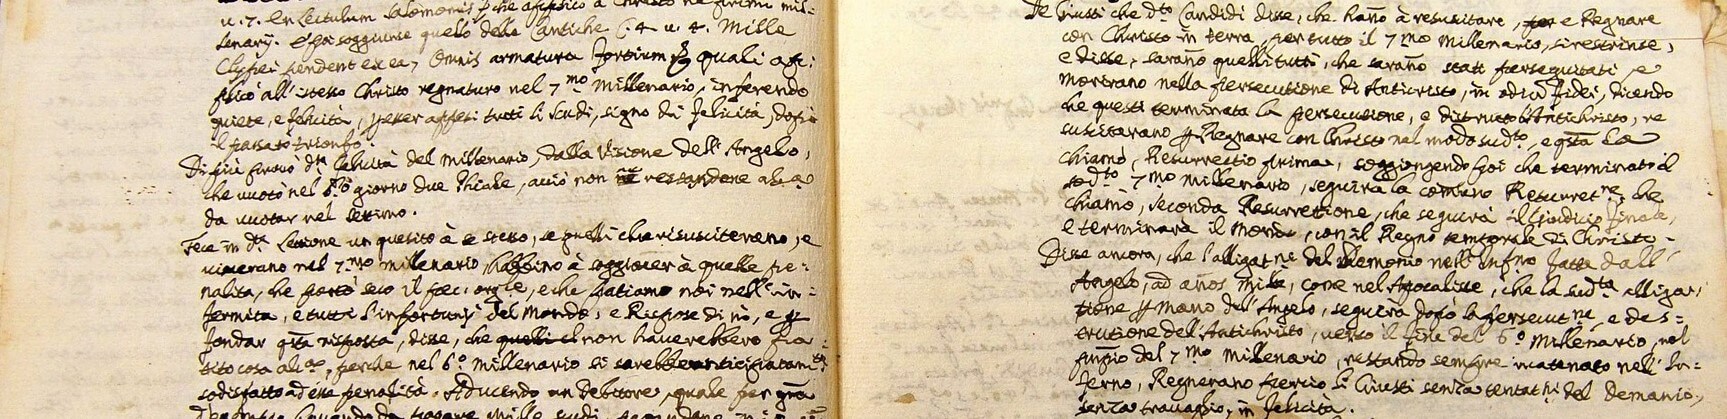 u. 7. En Lectulum Salomonis p che applicò à Christo ne primi mil-
lenarij. E poi soggiunse quello della Cantica C. 4 u. 4. Mille
Clypei pendent ex ea, Omnis armatura fortium quali ap:
plicò all'istesso Christo regnaturo nel 7.mo Millenario, inferendo
quiete, e felicità, p esser appesi tutti li scudi, segno di felicità, dopo
il passato trionfo.
Di più provò d.ta felicità del Millenario, dalla Visione dell'Angelo,
che vuotò nel 6.o giorno due Phiale, acciò non restandone alcuna
da vuotar nel settimo.
Fece in d.ta Lettione un quesito à se stesso, se quelli che risusciterano, e
viverano nel 7.mo millenario habbino à soggiacer à quelle pe:
nalità, che portò seco il pec: orig.le, e che patiamo noi nell'in:
fermità, e tutti l'infortunij del Mondo, e Rispose di nò, e p
fondar q.ta risposta, disse, che non haverebbero pa:
tito cosa al.a, perche nel 6.o millenario si sarebbe
sodisfatto ad esse penalità. Adducendo un debitore, quale per
mille scudi,
De Giusti che d.to Candidi disse, che hano à resuscitare, e Regnare
con Christo in terra, per tutto il 7.mo Millenario, si restrinse,
e disse, sarano quelli tutti, che sarano stati perseguitati, e
morirano nella persecutione di Anticristo, in odiu fidei, dicendo
che questi terminata la persecutione, e distrutto l'Antichristo, re
suscitarano p Regnare con Christo nel modo sud.to, e q.sta La
chiamò, Resurrectio prima, soggiongendo poi che terminato il
sod.to 7.mo Millenario, seguirà la comune Resurret.ne, che
chiamò, seconda Resurretione, che seguirà il Giudicio finale,
e terminarà il Mondo, con il Regno temporale di Christo.
Disse ancora, che l'alligat.ne del Demonio nell'Infno fatta dall'
Angelo, ad anos mille, come nel Apocalisse, che la sud.ta alliga:
tione p mano dell'Angelo, seguirà dopò la persecut.ne, e des-
trutione dell'Antichristo, verso il fine del 6.o Millenario, nel
pnpio del 7.mo Millenario, restando sempre incatenato nell'In=
ferno, Regnerano perciò li Giusti senza tentat.ni del Demonio,
senza travaglio, in felicità.